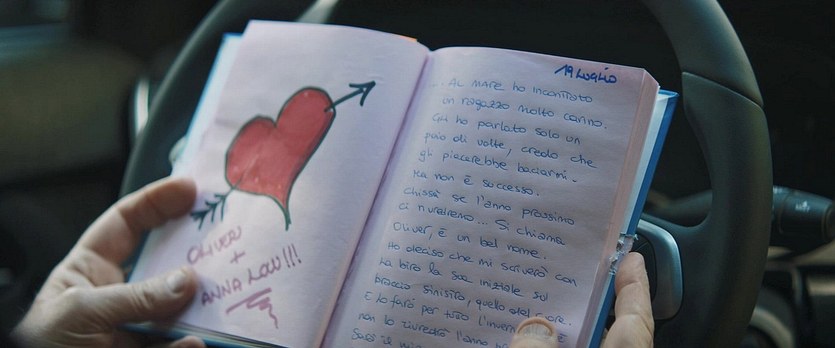 OLIVER
+
ANNA LOU!!!
19 LUGLIO
... AL MARE HO INCONTRATO
UN RAGAZZO MOLTO CARINO.
CI HO PARLATO SOLO UN
PAIO DI VOLTE, CREDO CHE
GLI PIACEREBBE BACIARMI.
MA NON È SUCCESSO.
CHISSÀ SE L'ANNO PROSSIMO
CI RIVEDREMO... SI CHIAMA
OLIVER, È UN BEL NOME.
HO DECISO CHE MI SCRIVERÒ CON
LA BIRO LA SUA INIZIALE SUL
BRACCIO SINISTRO, QUELLO DEL CUORE.
E LO FARÒ PER TUTTO L'INVERNO
NON LO RIVEDRÒ L'ANNO
SARÀ